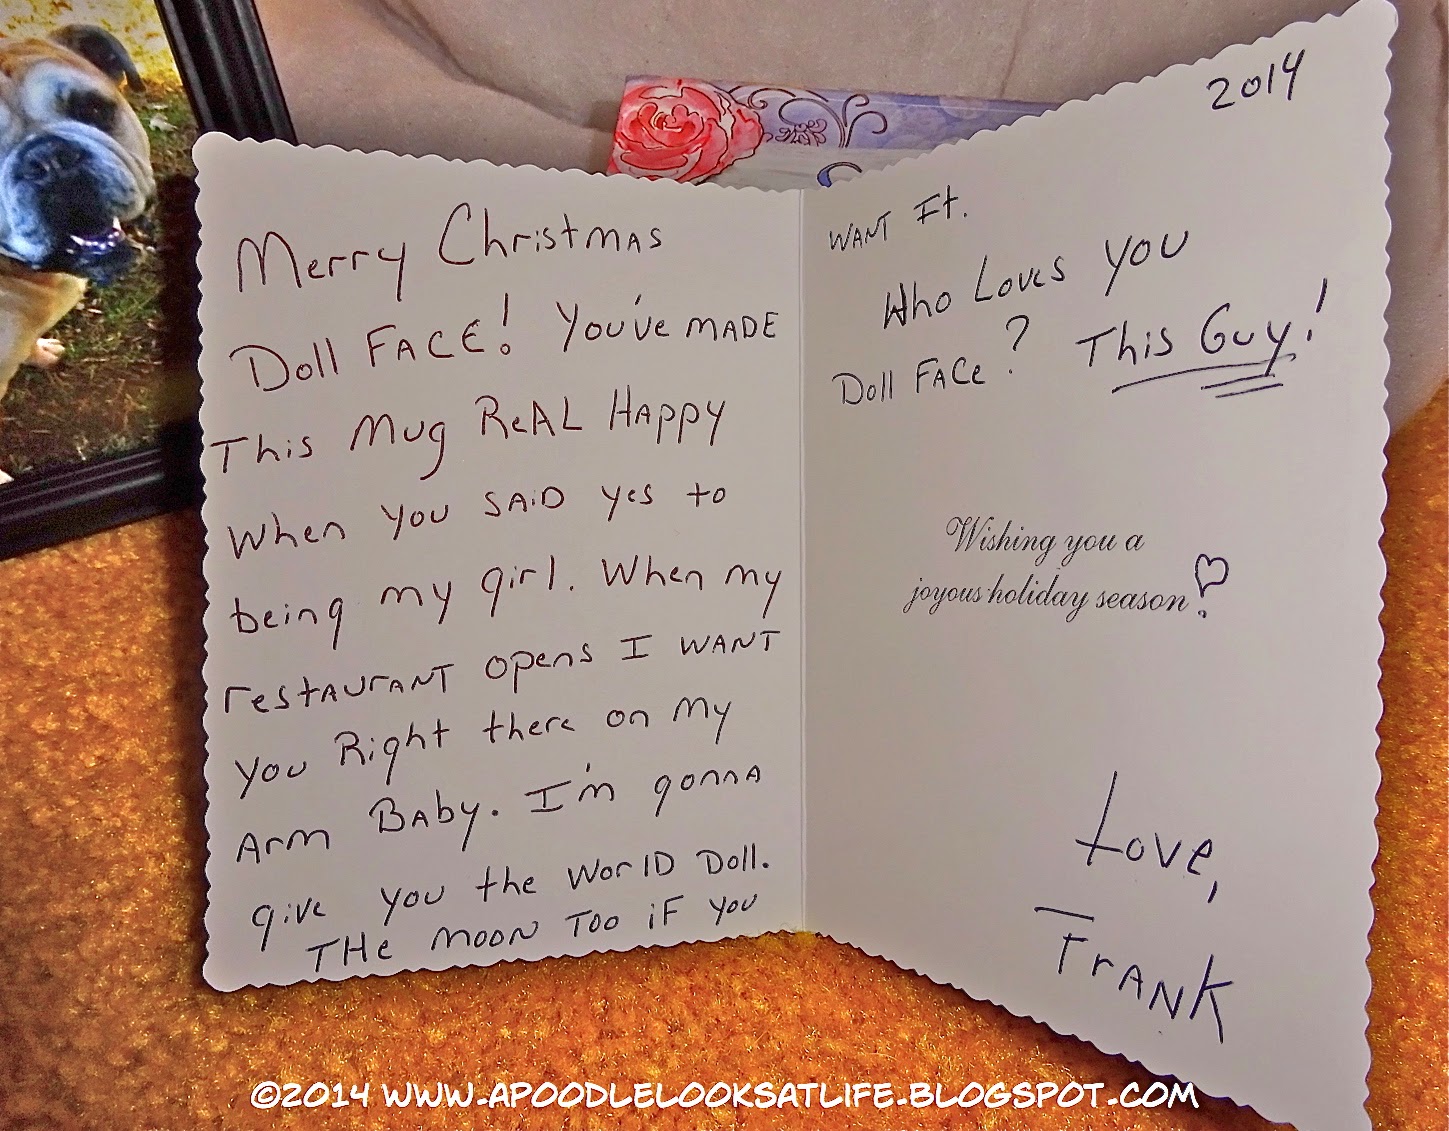 Merry Christmas
Doll Face! You've made
This Mug Real Happy
When you said yes to
being my girl. When my
restaurant opens I want
you Right there on my
Arm Baby. I'm gonna
give you the World Doll.
The moon too if you
2014
want It.
Who Loves you
Doll Face? This Guy!
Wishing you a
joyous holiday season
Love,
Frank
©2014 www.apoodlelooksatlife.blogspot.com